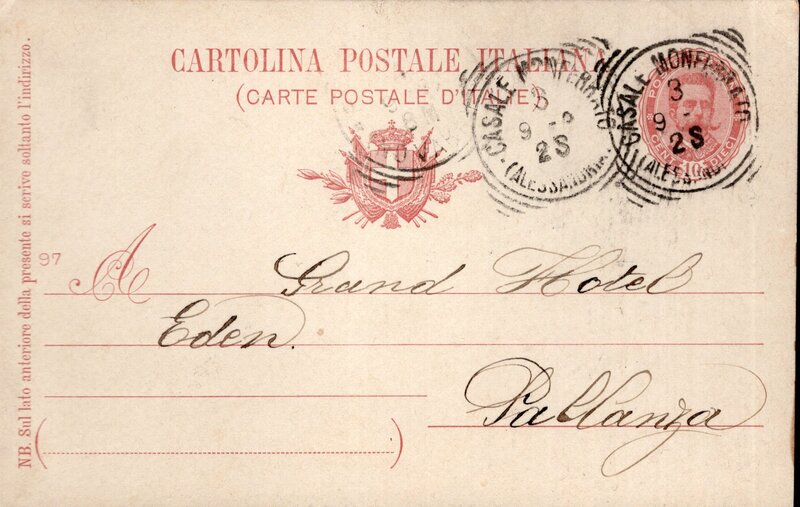 CARTOLINA POSTALE ITALIANA
(CARTE POSTALE D'ITALIE)
CASALE MONFERRATO
3
9
2S
(ALESSANDRIA)
CASALE MONFERRATO
3
9
2S
(ALESSANDRIA)
10 DIECI
97
A Grand Hotel
Eden.
Pallanza
NB. Sul lato anteriore della presente si scrive soltanto l'indirizzo.